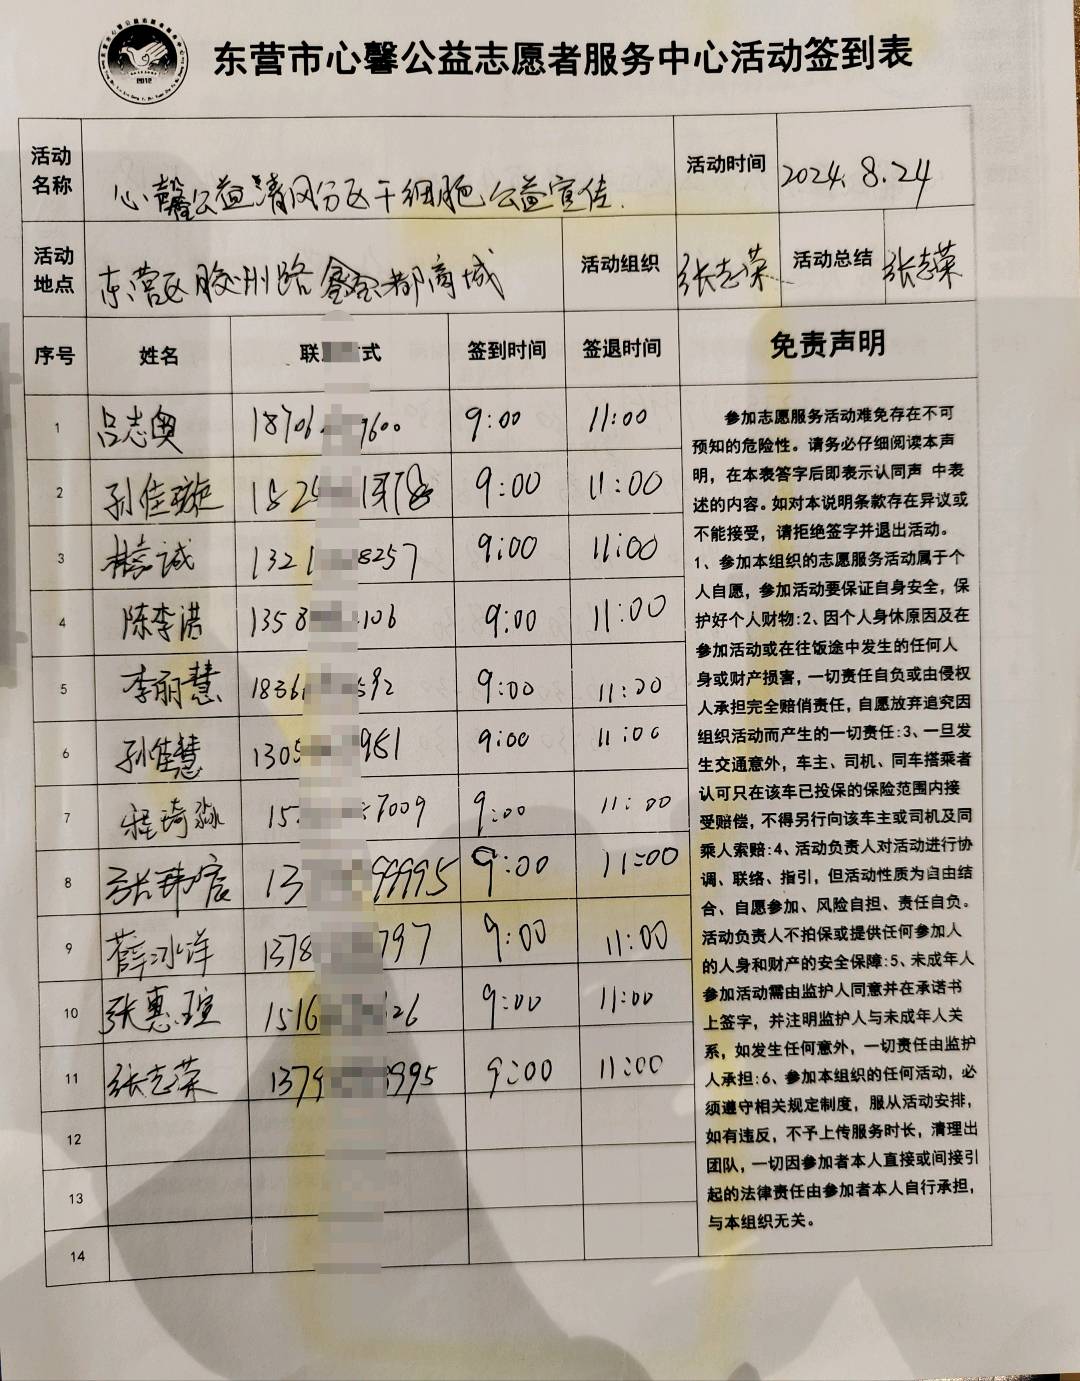 东营市心馨公益志愿者服务中心活动签到表
活动名称 心馨公益清风分区干细胞公益宣传. 活动时间 2024. 8.24
活动地点 东营区胶州路鑫都商城 活动组织 张志荣 活动总结 张志荣
序号 姓名 联 式 签到时间 签退时间 免责声明
1 吕志奥 18706 7600 9:00 11:00
2 孙佳璇 1525 9:00 11:00
3 林嘉诚 1321 8257 9:00 11:00
4 陈李浩 1358 106 9:00 11:00
5 李丽慧 1836 592 9:00 11:00
6 孙佳慧 1305 951 9:00 11:00
7 程琦淼 15 7009 9:00 11:00
8 张玮宸 13 99995 9:00 11:00
9 薛冰洋 1378 797 9:00 11:00
10 张惠瑄 1516 626 9:00 11:00
11 张志荣 1379 9995 9:00 11:00
12
13
14
参加志愿服务活动难免存在不可
预知的危险性。请务必仔细阅读本声
明，在本表答字后即表示认同声 中表
述的内容。如对本说明条款存在异议或
不能接受，请拒绝签字并退出活动。
1、参加本组织的志愿服务活动属于个
人自愿，参加活动要保证自身安全，保
护好个人财物:2、因个人身休原因及在
参加活动或在往饭途中发生的任何人
身或财产损害，一切责任自负或由侵权
人承担完全赔俏责任，自愿放弃追究因
组织活动而产生的一切责任:3、一旦发
生交通意外，车主、司机、同车搭乘者
认可只在该车已投保的保险范围内接
受赔偿，不得另行向该车主或司机及同
乘人索赔:4、活动负责人对活动进行协
调、联络、指引，但活动性质为自由结
合、自愿参加、风险自担、责任自负。
活动负责人不拍保或提供任何参加人
的人身和财产的安全保障:5、未成年人
参加活动需由监护人同意并在承诺书
上签字，并注明监护人与未成年人关
系，如发生任何意外，一切责任由监护
人承担:6、参加本组织的任何活动，必
须遵守相关规定制度，服从活动安排，
如有违反，不予上传服务时长，清理出
团队，一切因参加者本人直接或间接引
起的法律责任由参加者本人自行承担，
与本组织无关。